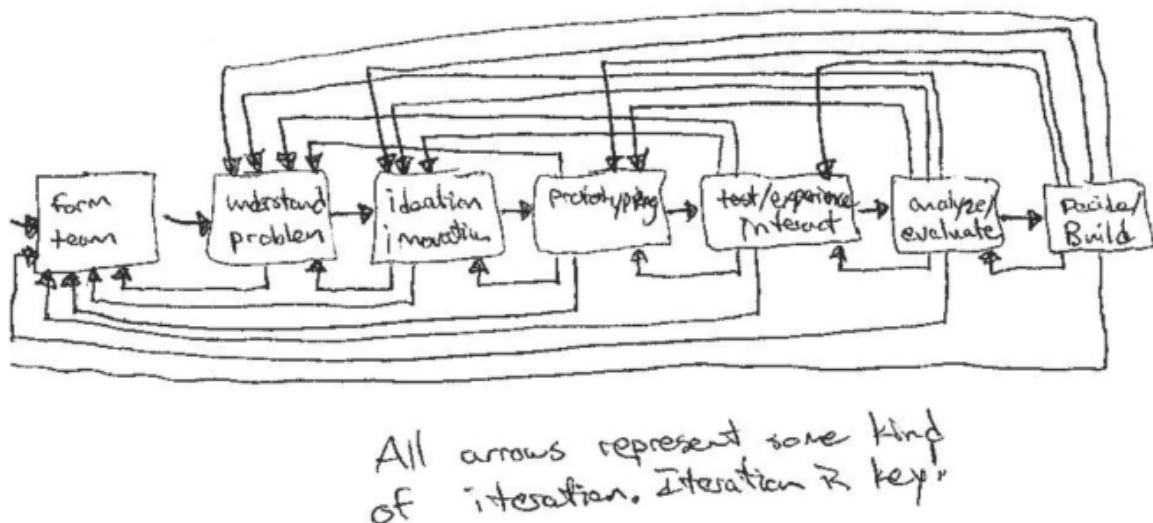 form
team
understand
problem
ideation
inovation
prototyping
test/experience
interact
analyze/
evaluate
Decide/
Build
All arrows represent some kind
of iteration. Iteration is key"